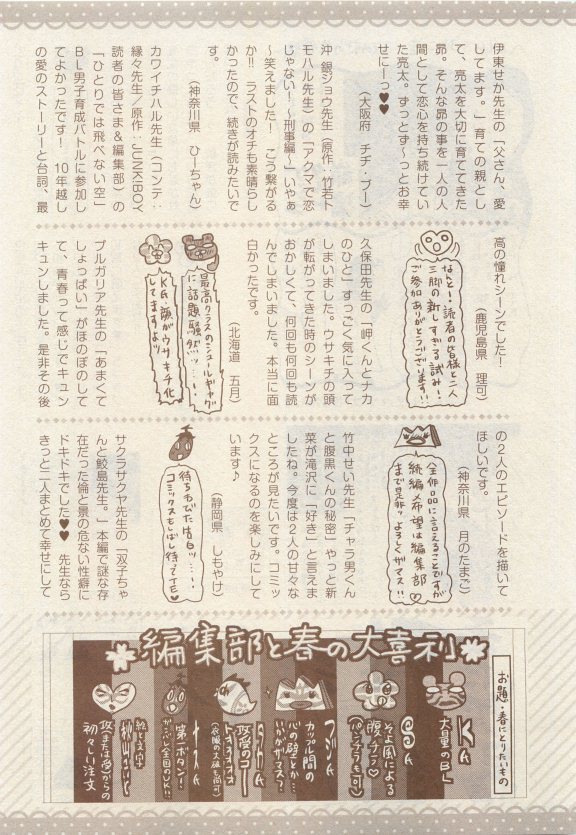 伊東せか先生の「父さん、愛
してます。」育ての親とし
て、亮太を大切に育ててきた
昴。そんな昴の事を一人の人
間として恋心を持ち続けてい
た亮太。ずっとず〜っとお幸
せにーっ♥♥
(大阪府 チチ・ブー)
沖 銀ジョウ先生(原作:竹若ト
モハル先生)の「アクマで恋
じゃない!〜刑事編〜」いやぁ
〜笑えました! こう繋がる
か!! ラストのオチも素晴らし
かったので、続きが読みたいで
す。
(神奈川県 ひーちゃん)
カワイチハル先生(コンテ:
縁々先生/原作:JUNKIBOY
読者の皆さま&編集部)の
「ひとりでは飛べない空」
BL男子育成バトルに参加し
てよかったです! 10年越し
の愛のストーリーと台詞、最
高の憧れシーンでした!
(鹿児島県 理可)
なんと!・読者の皆様と二人
三脚の新しすぎる試み!
ご参加ありがとうございます!!
久保田先生の「岬くんとナカ
のひと」すっごく気に入って
しまいました。ウサキチの頭
が転がってきた時のシーンが
おかしくて、何回も何回も読
んでしまいました。本当に面
白かったです。
(北海道 五月)
最高クラスのシュールギャグ
に話題騒然ッ…!
KG・顔がウサキチ化
してますョッ
ブルガリア先生の「あまくて
しょっぱい」がほのぼのして
て、青春って感じでキュン
キュンしました。是非その後
の2人のエピソードを描いて
ほしいです。
(神奈川県 月のたまご)
全作品に言えることですが
続編希望は編集部
まで是非ッよろしくザマス!!
竹中せい先生「チャラ男くん
と腹黒くんの秘密」やっと新
菜が滝沢に「好き」と言えま
したね。今度は2人の甘々な
ところが見たいです。コミッ
クスになるのを楽しみにして
います♪
(静岡県 しもやけ)
待ちわびた告白ッ…!
コミックスもしばし待ってTE♥
サクラサクヤ先生の「双子ちゃ
んと鮫島先生。」本編で謎な存
在だった倫と景の危ない性癖に
ドキドキでした♥♥ 先生なら
きっと二人まとめて幸せにして
編集部と春の大喜利
お題・春にとりたいもの
KK
大量のBL
SG
そよ風による
腹チラ♡
(パンチラも可)
フジG
カップル間の
心の壁とか…
いかがザマス?
攻受のコート
(衣服の大破も尚可)
第二ボタン!
がっぷし全国のDKの!!
絵と文字
攻(または受)からの
初々しい注文